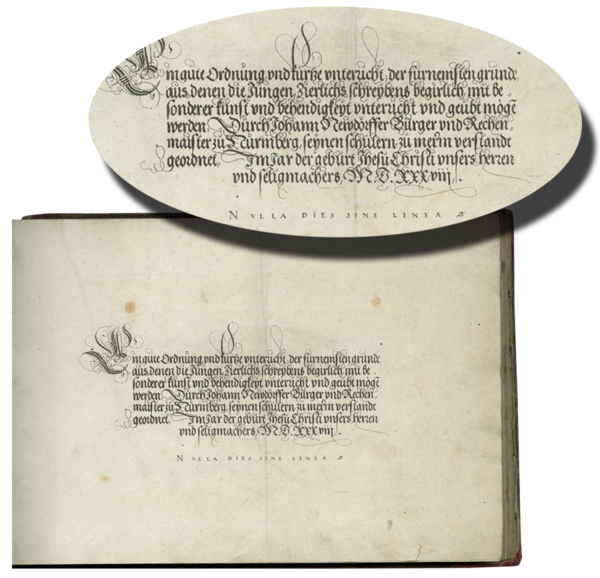 Ein gute Ordnung, vnd kurtze vnterricht, der furnemsten grunde
aus denen die Jungen, Zierlichs schreybens begirlich, mit be
sonderer kunst vnd behendigkeyt vnterricht vnd geubt mögē
werden Durch Johann Newdörffer Burger vnd Rechen,
maister zu Nurmberg, seynen schulern zu merm verstandt
geordnet. Im Jar der geburt Jhesu Christi vnsers herren
vnd seligmachers, M.D.XXXviij.
NVLLA DIES SINE LINEA
Ein gute Ordnung, vnd kurtze vnterricht, der furnemsten grunde
aus denen die Jungen, Zierlichs schreybens begirlich, mit be
sonderer kunst vnd behendigkeyt vnterricht vnd geubt mögē
werden Durch Johann Newdörffer Burger vnd Rechen,
maister zu Nurmberg, seynen schulern zu merm verstandt
geordnet. Im Jar der geburt Jhesu Christi vnsers herren
vnd seligmachers, M.D.XXXviij.
NVLLA DIES SINE LINEA